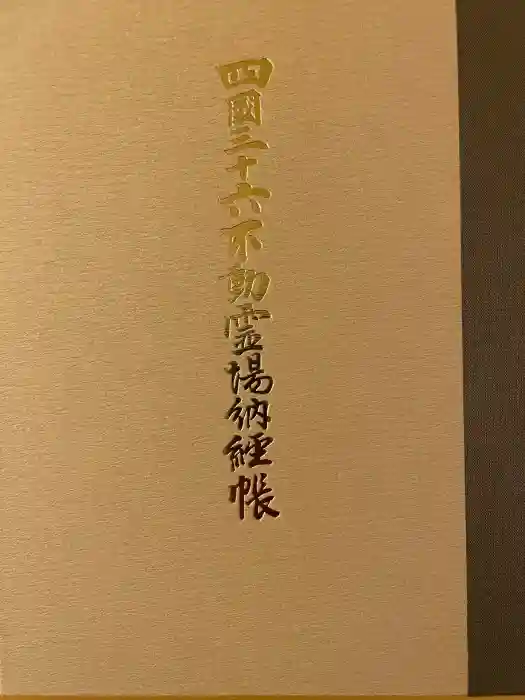 四國三十六不動霊場納經帳